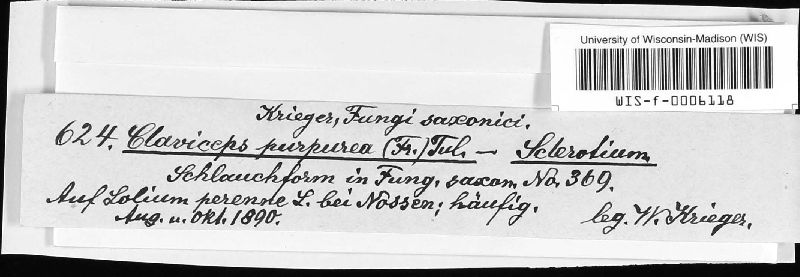 University of Wisconsin-Madison (WIS)
WIS-f-0006118
Krieger, Fungi saxonici.
624. Claviceps purpurea (Fr.) Tul. — Sclerotium
Schlauchform in Fung. saxon. No. 369.
Auf Lolium perenne L. bei Nossen; häufig.
Aug. u. Okt. 1890.
leg. W. Krieger.